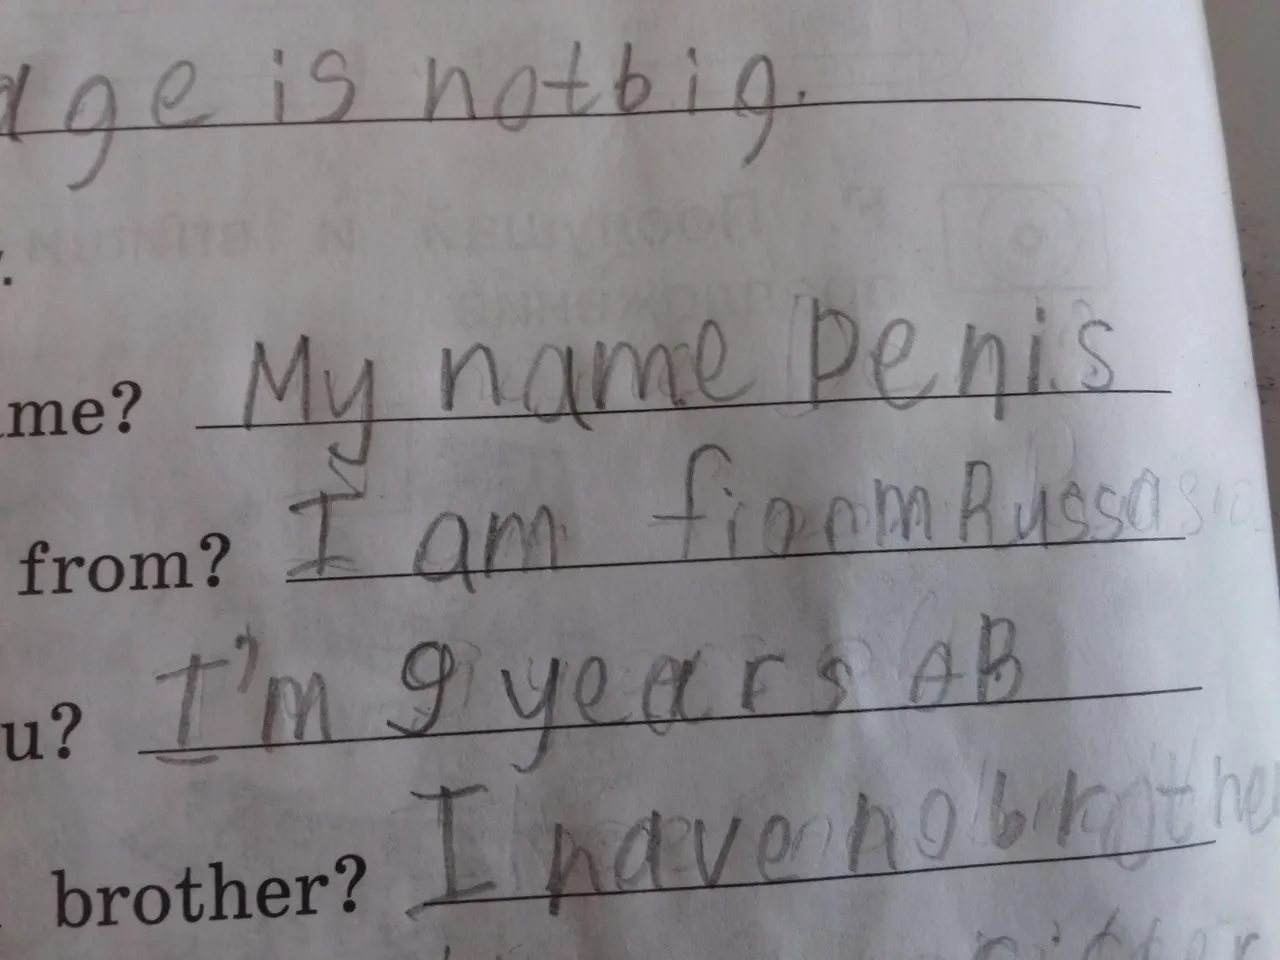 age is not big.
me? My name Denis
from? I am fioom Russa
u? I'm 9 years AB
brother? I have no brothe